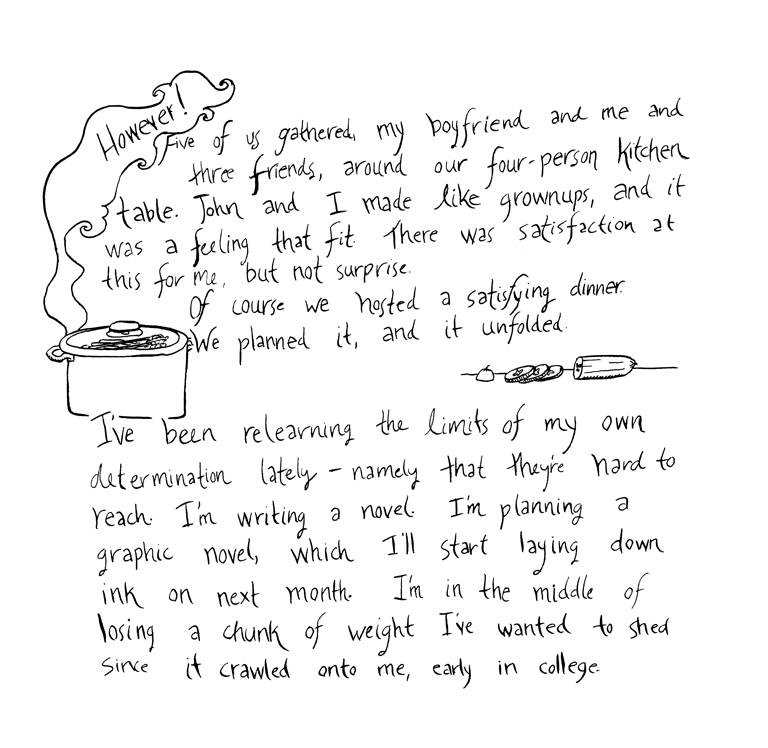 However!
Five of us gathered, my boyfriend and me and
three friends, around our four-person kitchen
table. John and I made like grownups, and it
was a feeling that fit. There was satisfaction at
this for me, but not surprise.
Of course we hosted a satisfying dinner.
We planned it, and it unfolded.
I've been relearning the limits of my own
determination lately – namely that they're hard to
reach. I'm writing a novel. I'm planning a
graphic novel, which I'll start laying down
ink on next month. I'm in the middle of
losing a chunk of weight I've wanted to shed
since it crawled onto me, early in college.